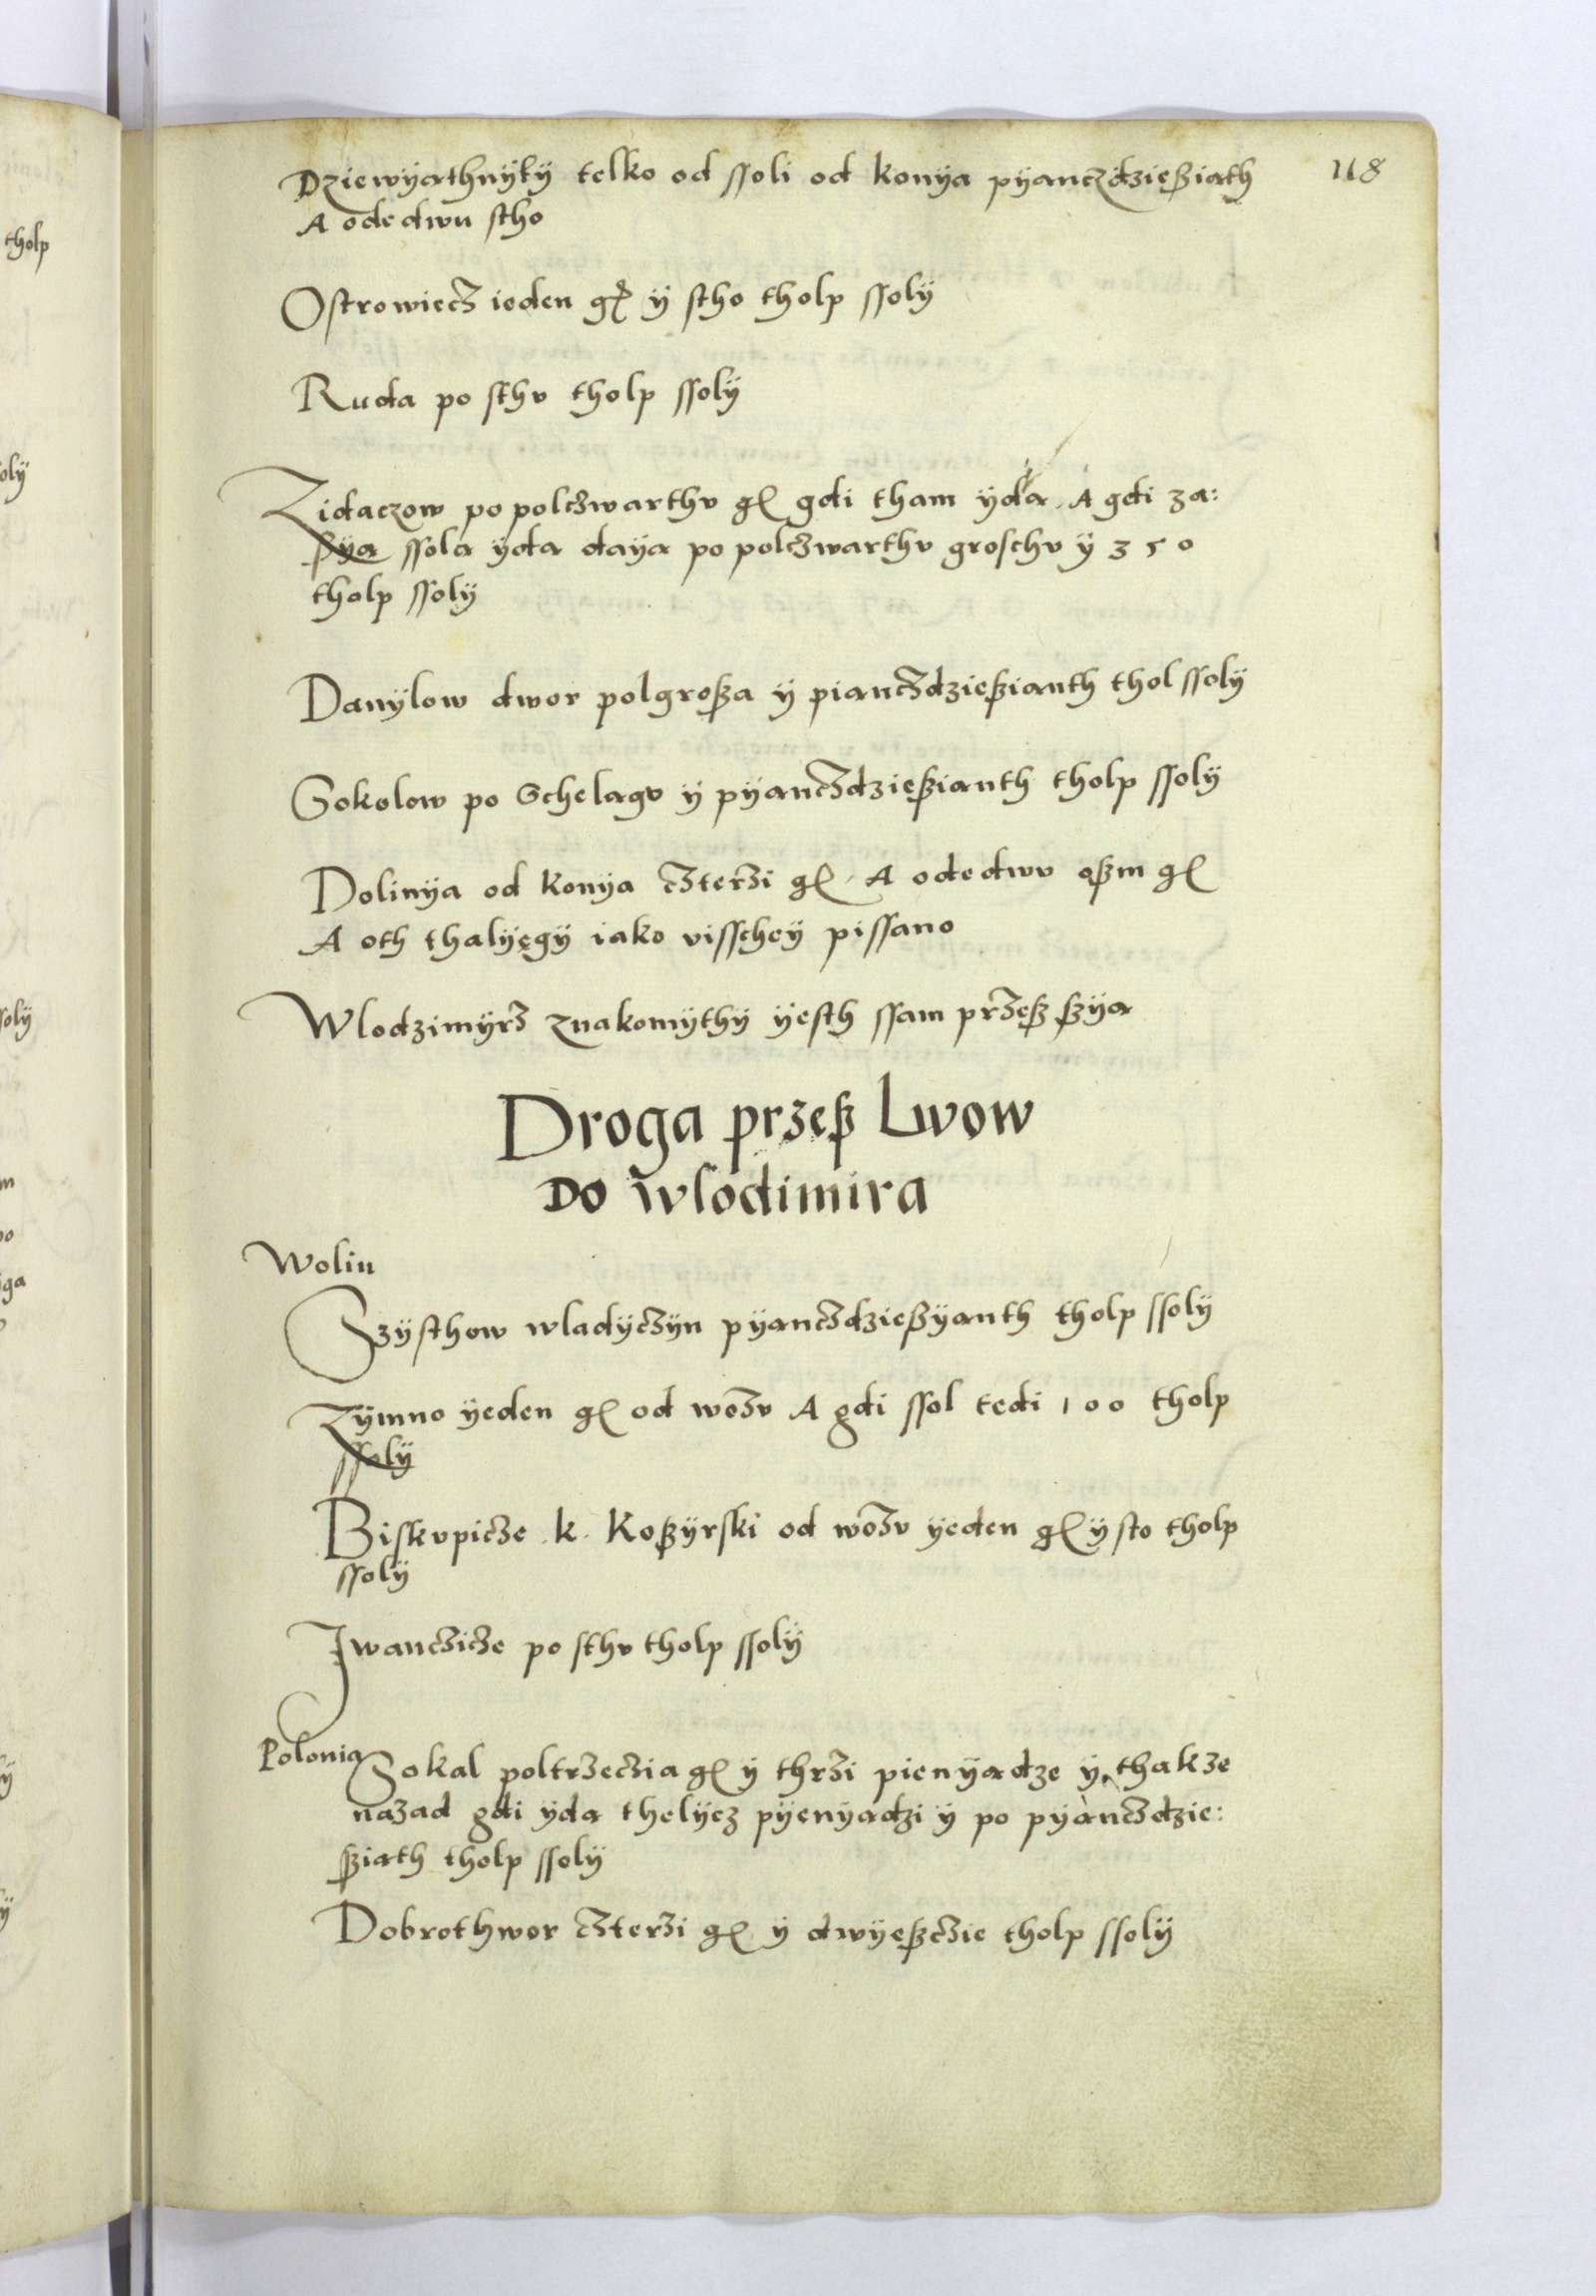 118
Dziewyathnÿky telko od ssoli od konÿa pÿanczdzießiath
A ode dwu stho
Ostrowiecz ieden gr ÿ stho tholp ssolÿ
Ruda po sthv tholp ssolÿ
Zidaczow po polczwarthv gr gdi tham ÿda A gdi za:
ßÿa ssola ÿda daÿa po polczwarthv groschv ÿ 350
tholp ssolÿ
Danÿlow dwor polgroßa ÿ pianczdzießianth thol ssolÿ
Sokolow po Schelagv ÿ pÿanczdzießianth tholp ssolÿ
Dolinÿa od konÿa czterzi gr A odedwv oßm gr
A oth thalÿęgÿ iako visschey pissano
Wlodzimÿrz znakomÿthÿ ÿesth ssam przeß ßÿa
Droga przeß Lwow
Do Wlodimira
Wolin
Szÿsthow wladÿczÿn pÿanczdzießÿanth tholp ssolÿ
Zÿmno ÿeden gr od wozv A gdi ssol tedi 100 tholp
ssolÿ
Biskvpicze k. Koßÿrski od wozv ÿeden gr ÿ sto tholp
ssolÿ
Jwanczicze po sthv tholp ssolÿ
Polonia
Sokal poltrzeczia gr ÿ thrzi pienÿadze ÿ thakze
nazad gdi ÿda thelÿez pÿenÿadzi ÿ po pÿanczdzie:
ßiath tholp ssolÿ
Dobrothwor czterzi gr ÿ dwÿeßczie tholp ssolÿ